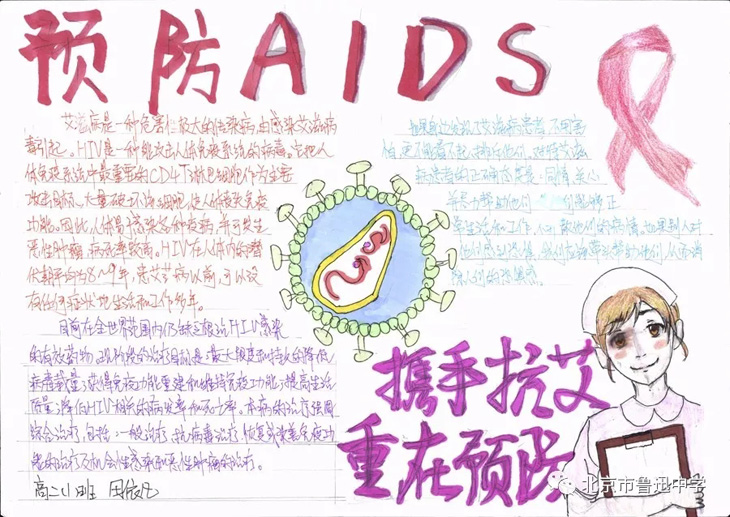 预防AIDS
艾滋病是一种危害性极大的传染病,由感染艾滋病
毒引起。HIV是一种能攻击人体免疫系统的病毒。它把人
体免疫系统中最重要的CD4T淋巴细胞作为主要
攻击目标,大量破坏该细胞,使人体丧失免疫
功能。因此,人体易感染各种疾病,并可发生
恶性肿瘤,病死率较高。HIV在人体内的潜
伏期平均为8~9年,患艾滋病以前,可以没
有任何症状地生活和工作多年。
目前在全世界范围内仍缺乏根治HIV感染
的有效药物。现阶段治疗目标是:最大限度和持久的降低
病毒载量;获得免疫功能重建和维持免疫功能;提高生活
质量;降低HIV相关的疾病发病率和死亡率。本病的治疗强调
综合治疗,包括:一般治疗、抗病毒治疗、恢复或改善免疫功
能的治疗及机会性感染和恶性肿瘤的治疗。
高二11班
如果身边发现了艾滋病患者,不用害
怕,更不能看不起、排斥他们,对待艾滋
病患者的正确态度是:同情、关心
并尽力帮助他们
常生活和工作,
他们
携手抗艾
重在预防
北京市鲁迅中学